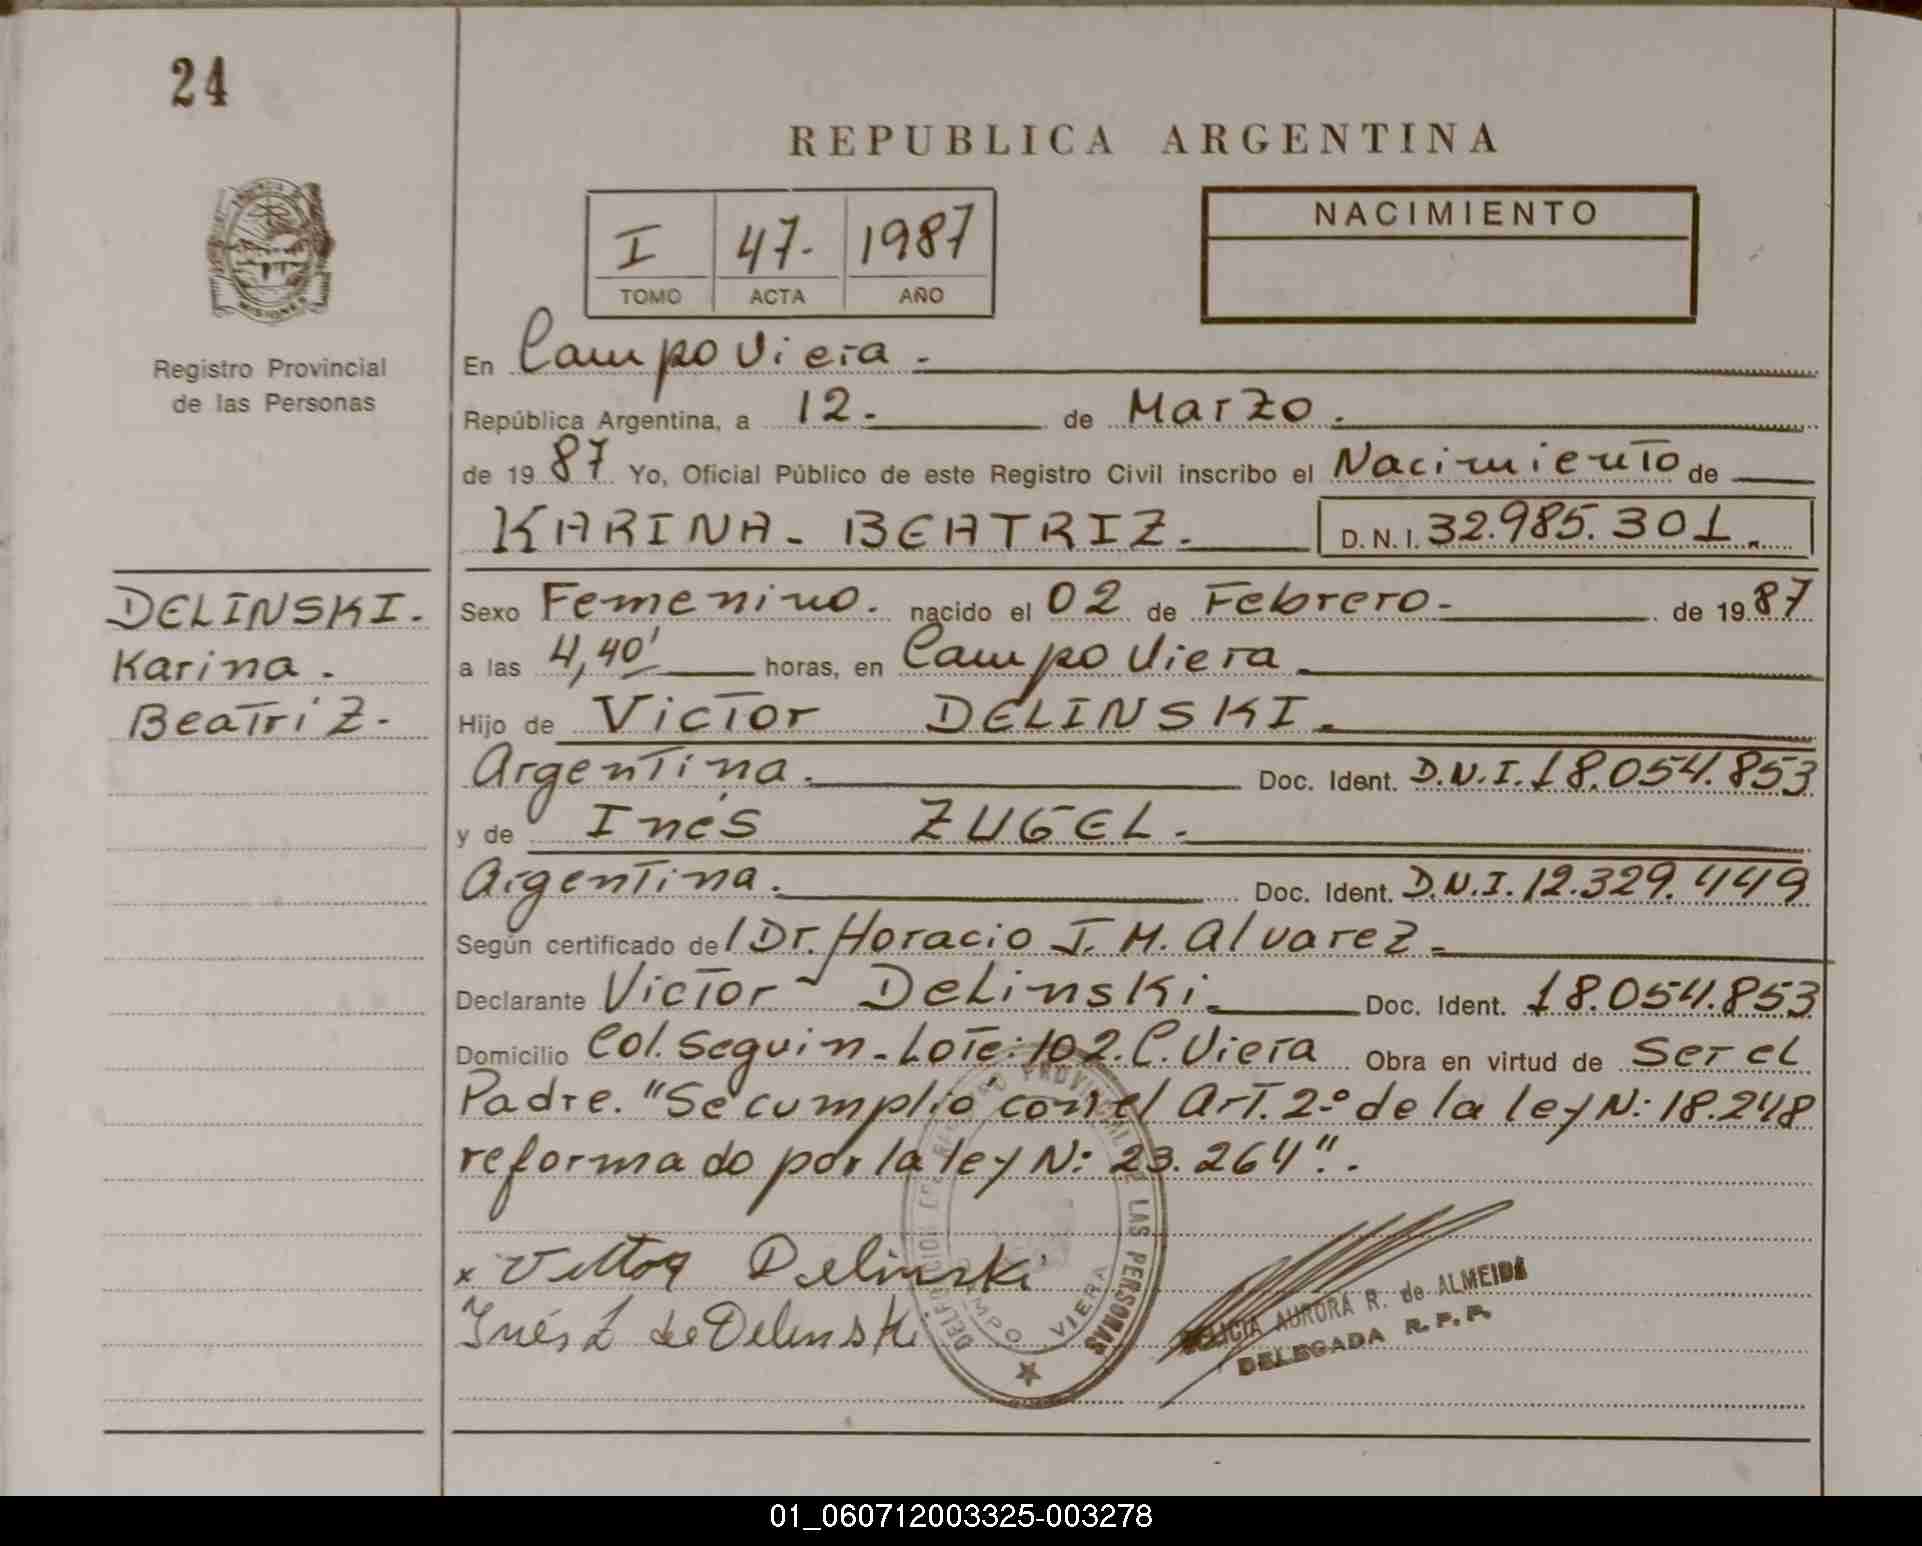 24
REPUBLICA ARGENTINA
I 47. 1987
TOMO ACTA AÑO
NACIMIENTO
MISIONES
Registro Provincial
de las Personas
En Campo Viera.
República Argentina, a 12. de Marzo.
de 1987 Yo, Oficial Público de este Registro Civil inscribo el Nacimiento de
KARINA - BEATRIZ. D.N.I. 32.985.301.
DELINSKI.
Karina.
Beatriz.
Sexo Femenino. nacido el 02 de Febrero. de 1987
a las 4,40' horas, en Campo Viera
Hijo de Victor DELINSKI.
Argentina. Doc. Ident. D.N.I. 18.054.853
y de Inés ZUGEL.
Argentina. Doc. Ident. D.N.I. 12.329.449
Según certificado del Dr. Horacio J. M. Alvarez
Declarante Victor Delinski. Doc. Ident. 18.054.853
Domicilio Col. Seguin - Lote: 102. C. Viera Obra en virtud de Ser el
Padre. "Se cumplió con el Art. 2º de la ley N: 18.248
reformado por la ley N: 23.264".
x Victor Delinski
Inés Z de Delinski
DELEGACION DEL REGISTRO PROVINCIAL DE LAS PERSONAS
CAMPO VIERA
AURORA R. de ALMEIDA
DELEGADA R.P.P.
01_060712003325-003278